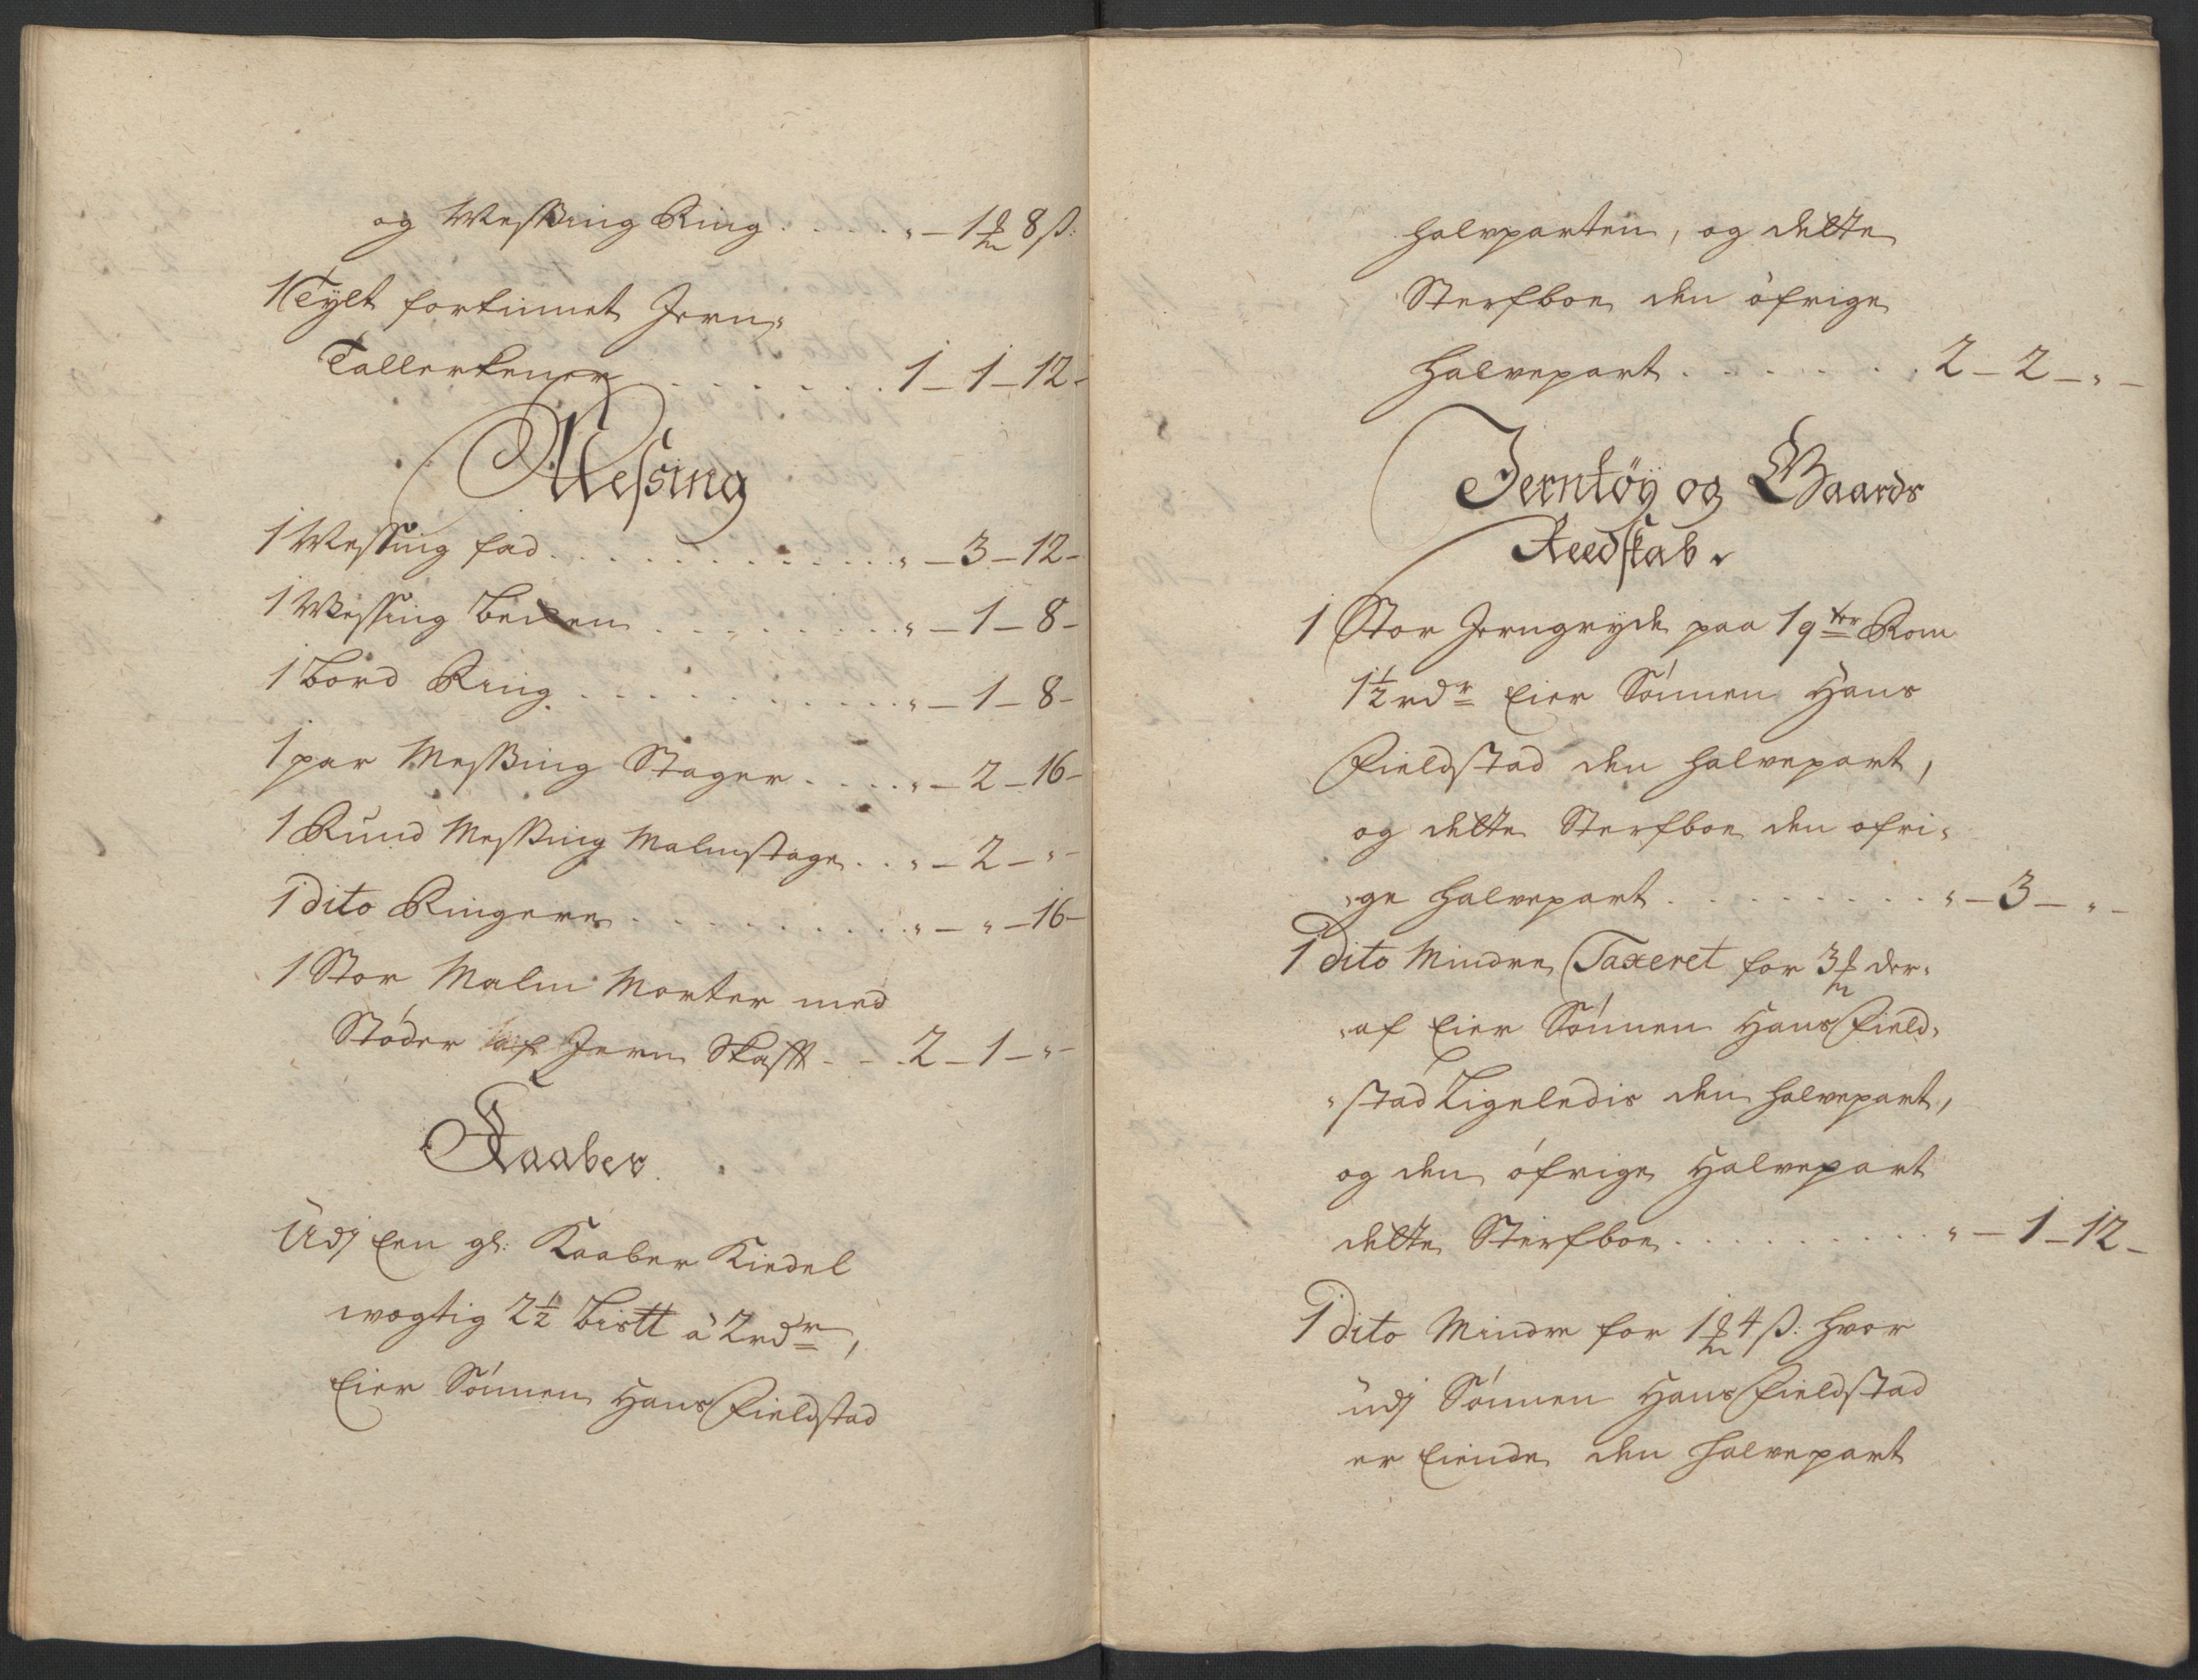 og Messing Ring . . . . . " – 1 ₰ 8 ß:
1 Tylt fortinnet Jern-
Tallerkener . . . . . . . 1 – 1 – 12 -
Messing
1 Messing fad . . . . . . . . . . . " – 3 – 12 -
1 Messing becken . . . . . . . . . " – 1 – 8 -
1 bord Ring . . . . . . . . . . . " – 1 – 8 -
1 par Messing Stager . . . . " – 2 – 16 -
1 Rund Messing Malmstage . . " – 2 – " -
1 dito Ringere . . . . . . . . . . " – " – 16 -
1 Stor Malm Morter med
Støder af Jern Skafft - - . 2 – 1 – " -
Kaaber.
Udj een gl: Kaaber Kiedel
wogtig 2½ bistt à 2 rdr,
Eier Sønnen Hans Fieldstad
halvparten, og dette
Sterfboe den öfrige
halvepart . . . . . . . 2 – 2 – " –
Jerntöy og Gaards
Reedskab.
1 Stor Jerngryde paa 1 qter Rom
1½ rdr Eier Sønnen Hans
Fieldstad den halvepart,
og dette Sterfboe den ofri-
-ge halvepart . . . . . . . . . " – 3 – " –
1 dito Mindre Taxeret for 3 ₰ der-
-af Eier Sønnen Hans Field-
-stad Ligeledis den halvepart,
og den öfrige Halvepart
dette Sterfboe . . . . . . . . . " – 1 – 12 -
1 dito Mindre for 1 ₰ 4 ß: hvor
udj Sønnen Hans Fieldstad
er Eiende den halvepart